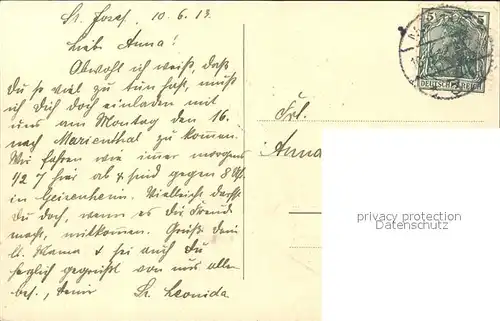 St. Josef, 10.6.13
Lieb. Anna!
Obwohl ich weiß, daß
Du so viel zu tun hast, muß
ich Dich doch einladen mit
uns am Montag den 16.
nach Marienthal zu kommen.
Wir fahren wie immer morgens
1/2 7 hier ab & sind gegen 8 Uhr
in Geisenheim. Vielleicht darfst
Du doch, wenn es Dir Freud
macht, mitkommen. Grüße Deine
lb. Mama & sei auch Du
herzlich gegrüßt von uns allen
bes. Deiner
Sr. Leonida
Frl.
Anna
5 5
DEUTSCHES REICH
privacy protection
Datenschutz